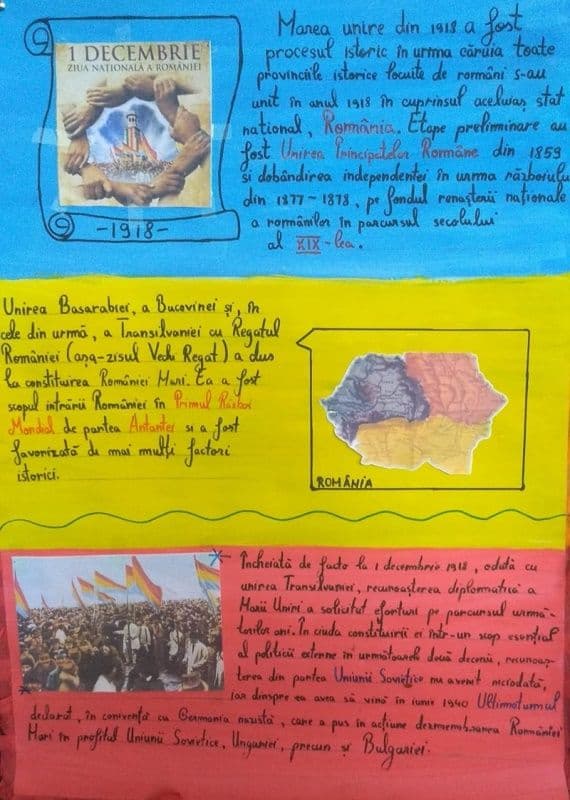 1 DECEMBRIE
ZIUA NAȚIONALĂ A ROMÂNIEI
-1918-
Marea unire din 1918 a fost
procesul istoric în urma căruia toate
provinciile istorice locuite de români s-au
unit în anul 1918 în cuprinsul aceluiaș stat
național, România. Etape preliminare au
fost Unirea Principatelor Române din 1859
și dobândirea independenței în urma războiului
din 1877-1878, pe fondul renașterii naționale
a românilor în parcursul secolului
al XIX-lea.
Unirea Basarabiei, a Bucovinei și, în
cele din urmă, a Transilvaniei cu Regatul
României (așa-zisul Vechi Regat) a dus
la constituirea României Mari. Ea a fost
scopul intrării României în Primul Război
Mondial de partea Antantei si a fost
favorizată de mai mulți factori
istorici.
ROMÂNIA
Încheiată de facto la 1 decembrie 1918, odată cu
unirea Transilvaniei, recunoașterea diplomatică a
Marii Uniri a solicitat eforturi pe parcursul urmă-
torilor ani. În ciuda constituirii ei într-un scop esențial
al politicii externe în următoarele două decenii, recunoaș-
terea din partea Uniunii Sovietice nu a venit niciodată,
iar dinspre ea avea să vină în iunie 1940 Ultimatumul
declarat, în conivență cu Germania nazistă, care a pus în acțiune dezmembrarea României
Mari în profitul Uniunii Sovietice, Ungariei, precum și Bulgariei.